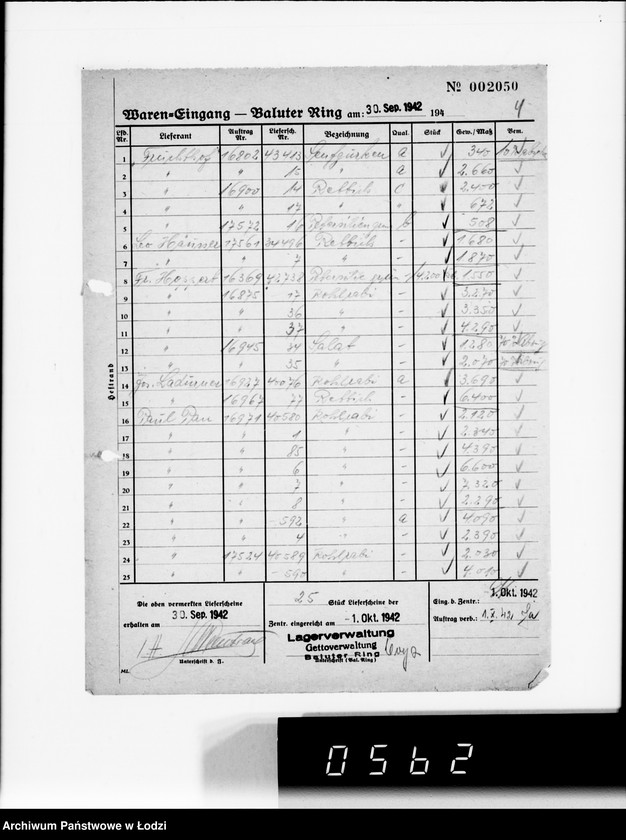 Nº 002050
Waren=Eingang — Baluter Ring am: 30. Sep. 1942 194 4
Lfd. Nr. Lieferant Auftrag Nr. Liefersch. Nr. Bezeichnung Qual. Stück Gew./Maß Bem.
1 Fruchthof 16802 43413 Senfgurken a ✓ 340
2 " " 15 " a ✓ 2.660 ✓
3 " 16900 14 Rettich c ✓ 2.400 ✓
4 " " 17 " " ✓ 672 ✓
5 " 17572 16 b ✓ 508 ✓
6 Leo 17561 34496 Rettich - ✓ 1680 ✓
7 " " 7 " - ✓ 1870 ✓
8 Fr. Hoppert 16369 42738 1550 ✓
9 " 16875 17 Kohlrabi - ✓ 3.270 ✓
10 " " 36 " - ✓ 3.350 ✓
11 " " 37 " - ✓ 4.290 ✓
12 " 16945 34 Salat - ✓ 1.280
13 " " 35 " - ✓ 2.070
14 Jos. Ladurner 16927 41076 Kohlrabi a ✓ 3.690 ✓
15 " 16967 77 Rettich - ✓ 6.400 ✓
16 Paul Pau 16971 40580 Kohlrabi - ✓ 2.120 ✓
17 " " 1 " - ✓ 2.340 ✓
18 " " 85 " - ✓ 4.390 ✓
19 " " 6 " - ✓ 6.600 ✓
20 " " 7 " - ✓ 7.320 ✓
21 " " 8 " - ✓ 2.290 ✓
22 " " 592 " a ✓ 4.090 ✓
23 " " 4 " - ✓ 2.390 ✓
24 " 17524 40589 Kohlrabi - ✓ 2.030 ✓
25 " " 590 " - ✓ 4.010 ✓
Heftrand
Die oben vermerkten Lieferscheine
erhalten am 30. Sep. 1942
Unterschrift d. H.
25 Stück Lieferscheine der
Zentr. eingereicht am - 1. Okt. 1942
Lagerverwaltung
Gettoverwaltung
Baluter Ring
Unterschrift (Bal. Ring)
Eing. b. Zentr.: - 1. Okt. 1942
Auftrag verb.: 1. X. 42.
ML.
0562
Archiwum Państwowe w Łodzi